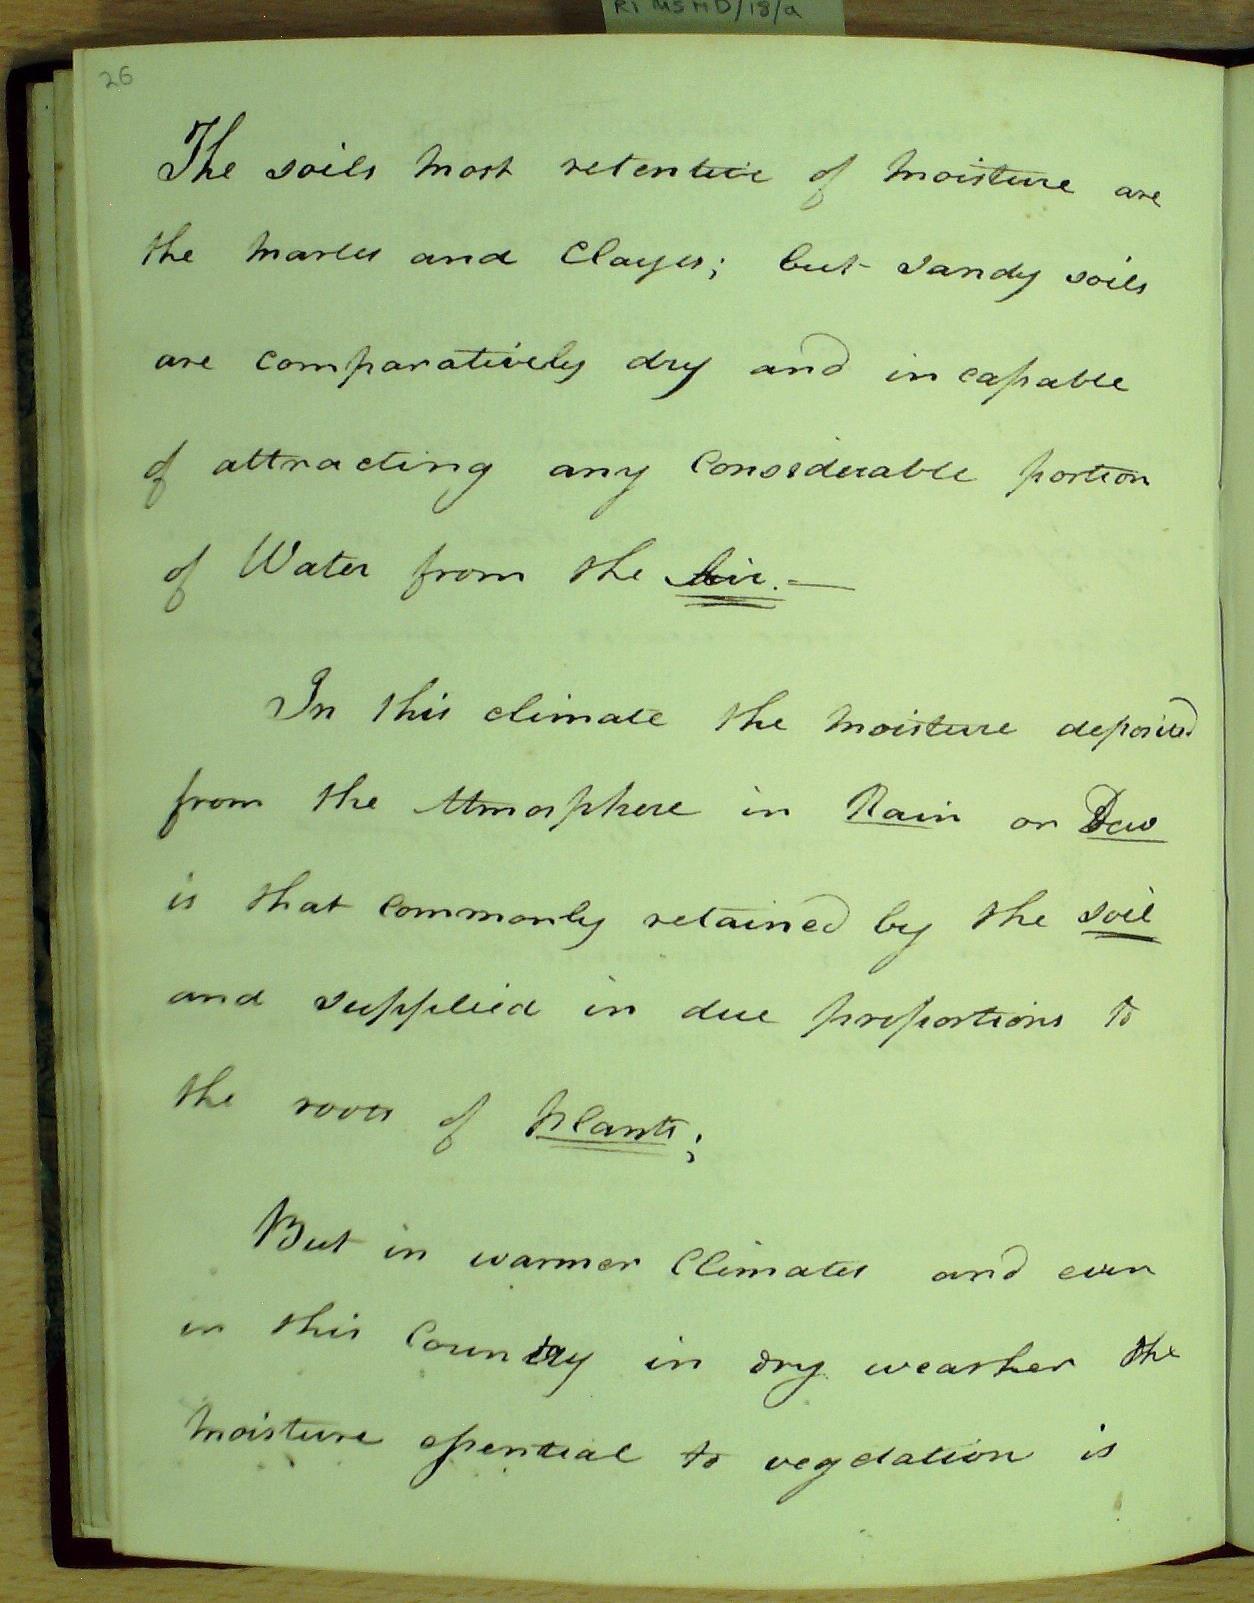 RI MS HD/18/a
26
The soils most retentive of moisture are
the Marles and Clayes; but sandy soils
are comparatively dry and incapable
of attracting any Considerable portion
of Water from the Air. —
In this climate the moisture deposited
from the Atmosphere in Rain or Dew
is that commonly retained by the soil
and supplied in due proportions to
the roots of Plants;
But in warmer Climates and even
in this Country in dry weather the
moisture essential to vegetation is